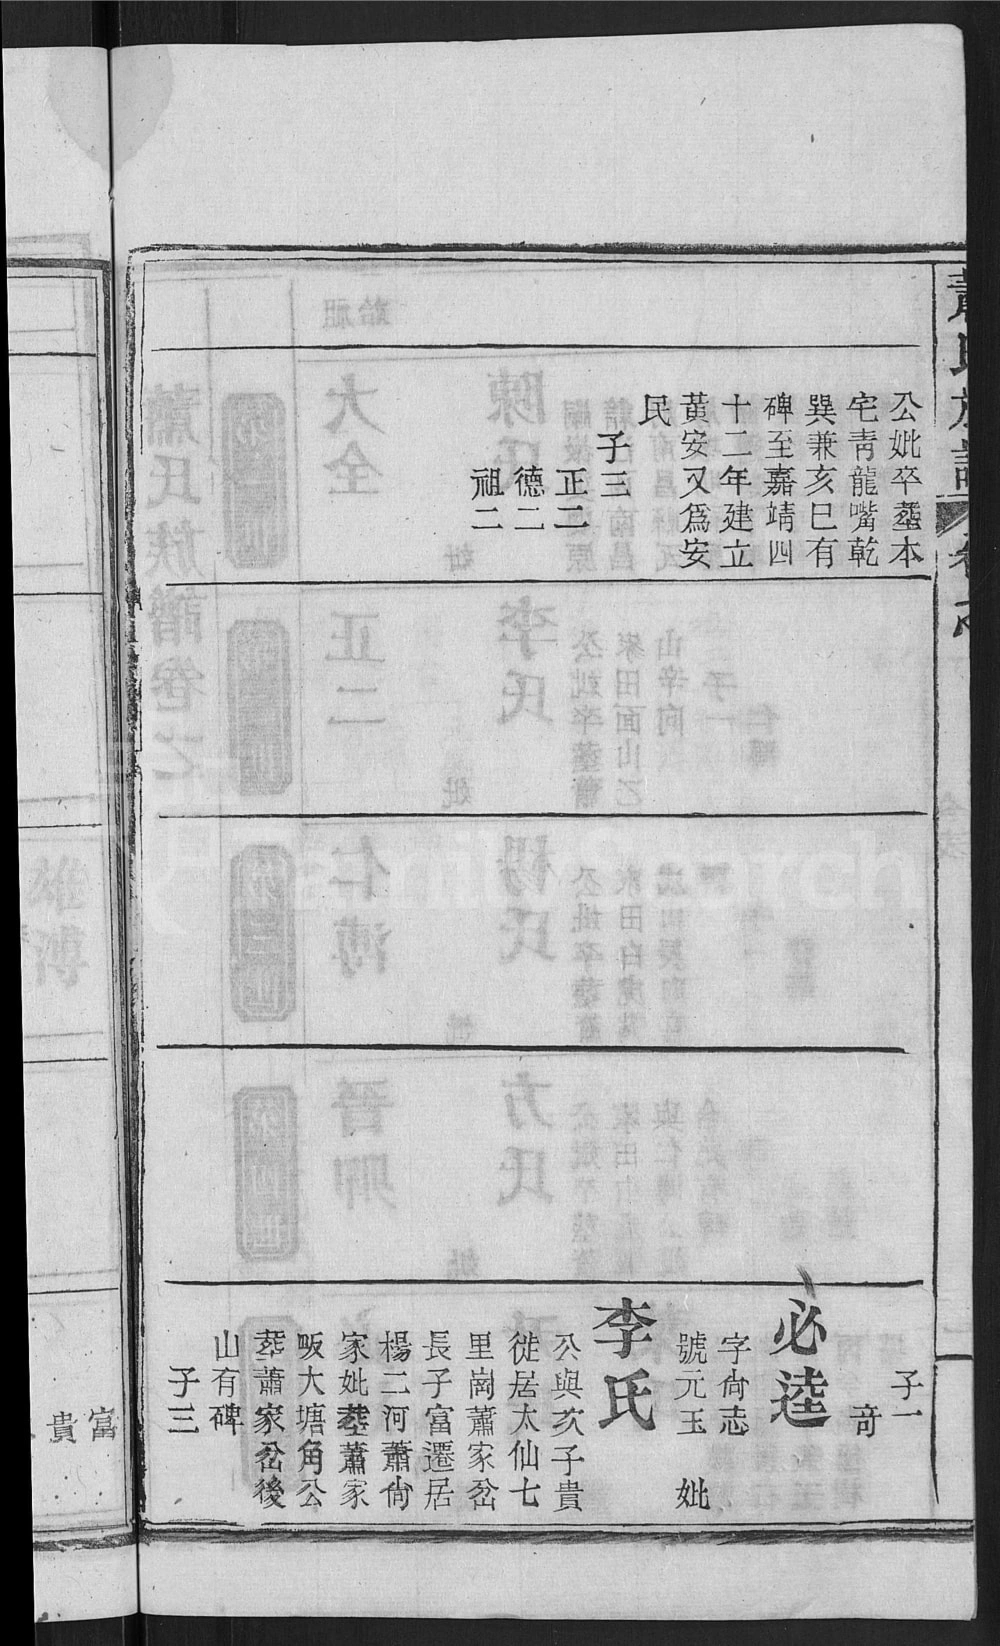 蕭氏族譜
公妣卒塟本
宅靑龍嘴乾
巽兼亥巳有
碑至嘉靖四
十二年建立
黃安又爲安
民
子三
正二
德二
祖二
子一
奇
必逵
字尙志
號元玉 妣
李氏
公與次子貴
徙居太仙七
里崗蕭家岔
長子富遷居
楊二河蕭尙
家妣塟蕭家
畈大塘角公
塟蕭家岔後
山有碑
子三
富
貴